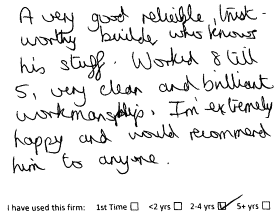 A very good reliable, trust-
worthy builder who knows
his stuff. Worked 8 till
5, very clean and brilliant
workmanship. I'm extremely
happy and would recommend
him to anyone.
I have used this firm: 1st Time ☐ <2 yrs ☐ 2-4 yrs ☑ 5+ yrs ☐